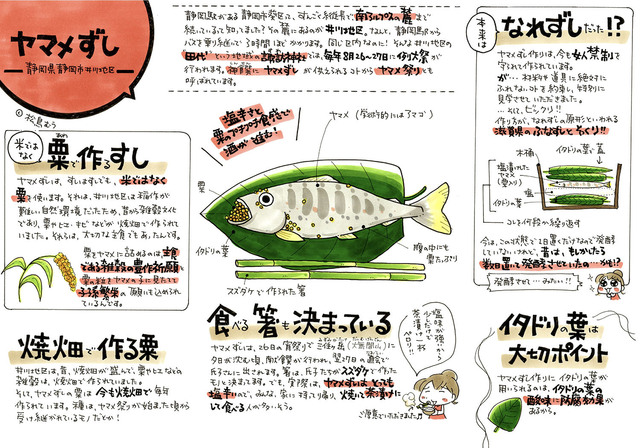 ヤマメずし
静岡県静岡市井川地区
©松鳥むう
静岡駅がある静岡市葵区は、すんごぐ縦長で、南アルプスの麓まで
続いているって知ってました？その麓にあるのが井川地区。なんと、静岡駅から
バスを乗り継いで3時間ほどかかります。同じ区内なのに！そんな井川地区の
田代という地域の諏訪神社では、毎年8月26〜27日に例大祭が
行われます。神饌にヤマメずしが供えられるコトからヤマメ祭りとも
呼ばれています。
本来は
なれずしだった!?
ヤマメずし作りは、今も女人禁制で
守られて作られています。
が…材料や道具に絶対に
ふれないコトを約束し、特別に
見学させていただきました。
…そして、ビックリ!!
作り方が、なれずしの原形といわれる
滋賀県のふなずしとそっくり!!
木桶
イタドリの葉で蓋
塩漬けした
ヤマメ
(粟入り)
塩
イタドリの葉
コレを何段か繰り返す
今は、この状態で1日置くだけなので発酵
していない。されど、昔は、もしかしたら
数日置いて発酵させていたの…かも!?
発酵ずし…みたい!!
米では
なく
粟で作るすし
あわ
ヤマメずしは、すしはすしでも、米ではなく
粟を使います。それは、井川地区は稲作が
難しい自然環境だったため。昔から雑穀文化で
あり、粟やヒエ・キビなどが焼畑で作られて
いました。それらは、大切な主食でもあったんです。
粟をヤマメに詰めるのは、主食
である雑穀類の豊作祈願と
粟の粒をヤマメの子に見たてて
子孫繁栄の願いも込められ
ているんです。
塩辛さと
粟のプチプチ食感で
酒が進む！
ヤマメ（学術的にはアマゴ）
粟
イタドリの葉
腹の中にも
粟たっぷり
スズタケで作った箸
焼畑で作る粟
井川地区は、昔、焼畑が盛んで、粟やヒエなどの
雑穀は、焼畑で作られていました。
そして、ヤマメずしの粟は今も焼畑で毎年
作られています。種は、ヤマメ祭りが始まった頃から
受け継がれているモノだとか！
食べる箸も決まっている
ヤマメずしは、26日の宵祭りで
夕日が沈む頃、
氏子さんに出されます。箸は、氏子たちがスズタケで作った
モノと決まってます。でも、実際は、ヤマメずしは、とっても
塩辛いので、みんな、家に持って帰り、焼いて茶漬けに
して食べる人が多いそう。
塩味が強いから
少しだけで
茶漬け一杯
ペロリ!!
ご馳走でいただきました
イタドリの葉は
大切ポイント
ヤマメずし作りにイタドリの葉が
用いられるのは、イタドリの葉の
酸味に防腐効果が
あるから。